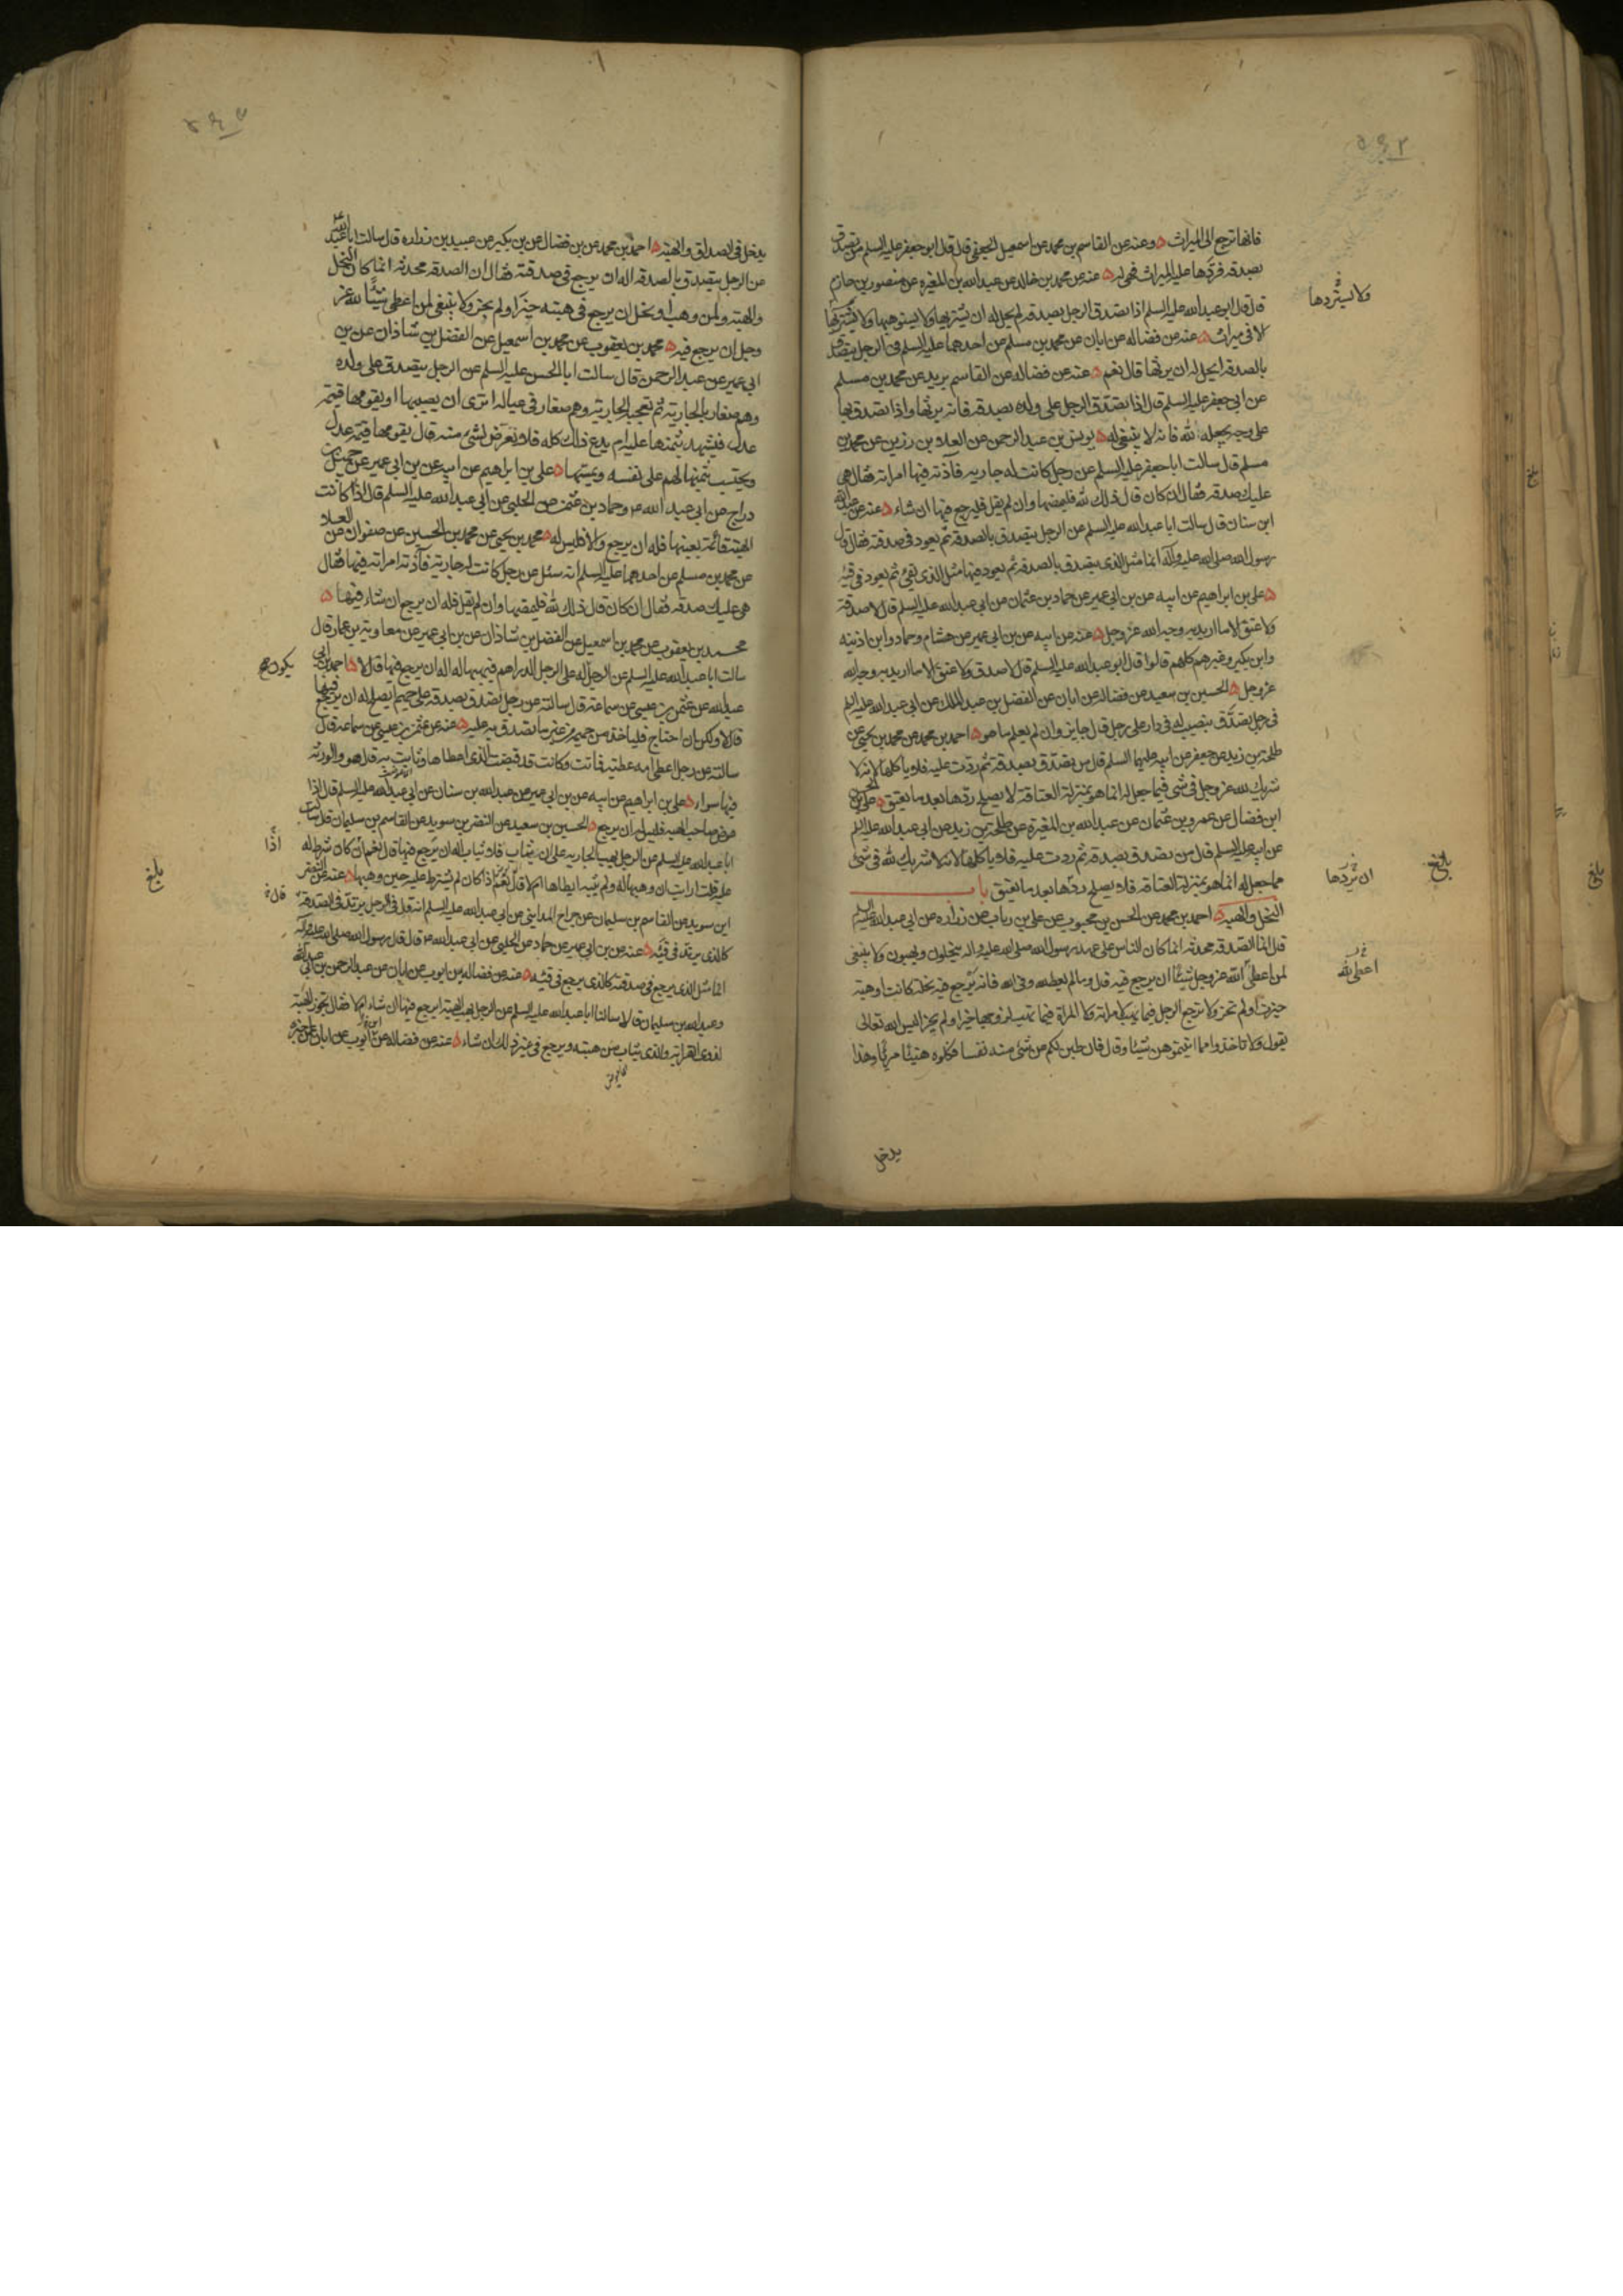 فانها ترجع الى الميراث وعنه عن القاسم بن محمد عن اسمعيل الجعفي قال قال ابو جعفر عليه السلم من تصدق
بصدقة فردها عليه الميراث فهي له عنه عن محمد بن خالد عن عبد الله بن المغيره عن منصور بن حازم
قال قال ابو عبد الله عليه السلم اذا تصدق الرجل بصدقة لم يحل له ان يشتريها ولا يستوهبها ولا يستردها
الا في ميراث عنه عن فضاله عن ابان عن محمد بن مسلم عن احدهما عليه السلم في الرجل يتصدق
بالصدقة ايحل له ان يرثها قال نعم عنه عن فضاله عن القاسم بن بريد عن محمد بن مسلم
عن ابي جعفر عليه السلم قال اذا تصدق الرجل على ولده بصدقة فانه يرثها واذا تصدق بها
على وجه يجعله لله فانه لا ينبغي له يونس بن عبد الرحمن عن العلاء بن رزين عن محمد بن
مسلم قال سالت ابا جعفر عليه السلم عن رجل كانت له جاريه فآذته فيها امراته فقال هي
عليك صدقه فقال ان كان قال ذلك لله فليمضها وان لم يقل فليرجع فيها ان شاء عنه عن عبد الله
ابن سنان قال سالت ابا عبد الله عليه السلم عن الرجل يتصدق بالصدقه ثم يعود في صدقته فقال قال
رسول الله صلى الله عليه وآله انما مثل الذي يتصدق بالصدقه ثم يعود فيها مثل الذي يقئ ثم يعود في قيئه
على بن ابراهيم عن ابيه عن بن ابي عمير عن حماد بن عثمان عن ابي عبد الله عليه السلم قال لا صدقة
ولا عتق الا ما اريد به وجه الله عز وجل عنه عن ابيه عن بن ابي عمير عن هشام وحماد وابن اذينه
وابن بكير وغيرهم كلهم قالوا قال ابو عبد الله عليه السلم قال لا صدقه ولا عتق الا ما اريد به وجه الله
عز وجل الحسين بن سعيد عن فضاله عن ابان عن الفضل بن عبد الملك عن ابي عبد الله عليه السلم
في رجل تصدق بنصيب له في دار على رجل قال جايز وان لم يعلم ما هو احمد بن محمد عن محمد بن يحيى عن
طلحة بن زيد عن جعفر عن ابيه عليهما السلم قال من تصدق بصدقة ثم ردت عليه فلا ياكلها لانه لا
شريك لله عز وجل في شئ فيما جعل له انما هو بمنزلة العتاقة لا يصلح ردها بعد ما يعتق على بن الحسن
ابن فضال عن عمرو بن عثمان عن عبد الله بن المغيرة عن طلحة بن زيد عن ابي عبد الله عليه السلم
عن ابيه عليه السلم قال من تصدق بصدقة ثم ردت عليه فلا ياكلها لانه لا شريك لله في شئ
مما جعل له انما هو بمنزلة العتاقه فلا يصلح ردها بعد ما يعتق باب
النحل والهبه احمد بن محمد عن الحسن بن محبوب عن على بن رياب عن زراره عن ابي عبد الله عليه السلم
قال انما الصدقة محدثة انما كان الناس على عهد رسول الله صلى الله عليه واله ينحلون ويهبون ولا ينبغي
لمن اعطى الله عز وجل شيئا ان يرجع فيه قال وما لم يعطه لله وفي الله فانه يرجع فيه نحلة كانت او هبة
حيزت او لم تحز ولا يرجع الرجل فيما يهب لامراته ولا المراة فيما تهب لزوجها حيز او لم يحز اليس الله تعالى
يقول ولا تاخذوا مما اتيتموهن شيئا وقال فان طبن لكم عن شئ منه نفسا فكلوه هنيئا مريئا وهذا
ولا يستردها
ان يردها
بلغ
اعطى لله
يدخل
يدخل في الصداق والهبة احمد بن محمد عن بن فضال عن بن بكير عن عبيد بن زراره قال سالت ابا عبد الله
عن الرجل يتصدق بالصدقه اله ان يرجع في صدقته فقال ان الصدقه محدثه انما كان النحل
والهبة ولمن وهب او نحل ان يرجع في هبته حيز او لم يحز ولا ينبغي لمن اعطى شيئا لله عز
وجل ان يرجع فيه محمد بن يعقوب عن محمد بن اسمعيل عن الفضل بن شاذان عن بن
ابي عمير عن عبد الرحمن قال سالت ابا الحسن عليه السلم عن الرجل يتصدق على ولده
وهم صغار بالجارية ثم تعجبه الجارية وهم صغار في عياله اترى ان يصيبها او يقومها قيمة
عدل فيشهد بثمنها عليه ام يدع ذلك كله فلا يعرض لشئ منه قال يقومها قيمة عدل
ويحتسب بثمنها لهم على نفسه ويمسها على بن ابراهيم عن ابيه عن بن ابي عمير عن جميل بن
دراج عن ابي عبد الله ع وحماد بن عثمن عن الحلبي عن ابي عبد الله عليه السلم قال اذا كانت
الهبة قائمة بعينها فله ان يرجع والا فليس له محمد بن يحيى عن محمد بن الحسين عن صفوان عن العلاء
عن محمد بن مسلم عن احدهما عليه السلم انه سئل عن رجل كانت له جارية فآذته امراته فيها فقال
هي عليك صدقه فقال ان كان قال ذلك لله فليمضها وان لم يقل فله ان يرجع ان شاء فيها
محمد بن يعقوب عن محمد بن اسمعيل عن الفضل بن شاذان عن بن ابي عمير عن معاوية بن عمار قال
سالت ابا عبد الله عليه السلم عن الرجل له على الرجل الدراهم فيهبها له اله ان يرجع فيها قال لا احمد بن ابي
عبد الله عن عثمن بن عيسى عن سماعة قال سالته عن رجل تصدق بصدقه على حميم ايصلح له ان يرجع فيها
قال لا ولكن ان احتاج فلياخذ من حميمه من غير ما تصدق به عليه عنه عن عثمن بن عيسى عن سماعه قال
سالته عن رجل اعطى امه عطية فماتت وكانت قد قبضت الذي اعطاها وبانت به قال هو والورثه
فيها سواء على بن ابراهيم عن ابيه عن بن ابي عمير عن عبد الله بن سنان عن ابي عبد الله عليه السلم قال اذا
عوض صاحب الهبه فليس له ان يرجع الحسين بن سعيد عن النضر بن سويد عن القاسم بن سليمان قال سالت
ابا عبد الله عليه السلم عن الرجل يهب الجاريه على ان يثاب فلا يثاب اله ان يرجع فيها قال نعم ان كان شرط له
عليه قلت ارايت ان وهبها له ولم يثبه ايطاها ام لا قال نعم اذا كان لم يشترط عليه حين وهبها عنه عن النضر
ابن سويد عن القاسم بن سليمان عن جراح المدايني عن ابي عبد الله عليه السلم انه قال في الرجل يرتد في الصدقة
كالذي يرتد في قيئه عنه عن بن ابي عمير عن حماد عن الحلبي عن ابي عبد الله ع قال قال رسول الله صلى الله عليه وآله
انما مثل الذي يرجع في صدقته كالذي يرجع في قيئه عنه عن فضاله بن ايوب عن ابان عن عبد الرحمن بن ابي عبد الله
وعبد الله بن سليمان قالا سالنا ابا عبد الله عليه السلم عن الرجل يهب الهبة ايرجع فيها ان شاء ام لا فقال تجوز الهبة
لذوي القرابة والذي يثاب من هبته ويرجع في غير ذلك ان شاء عنه عن فضاله بن ايوب عن ابان عمن اخبره
يكون
اذا
قال
بلغ